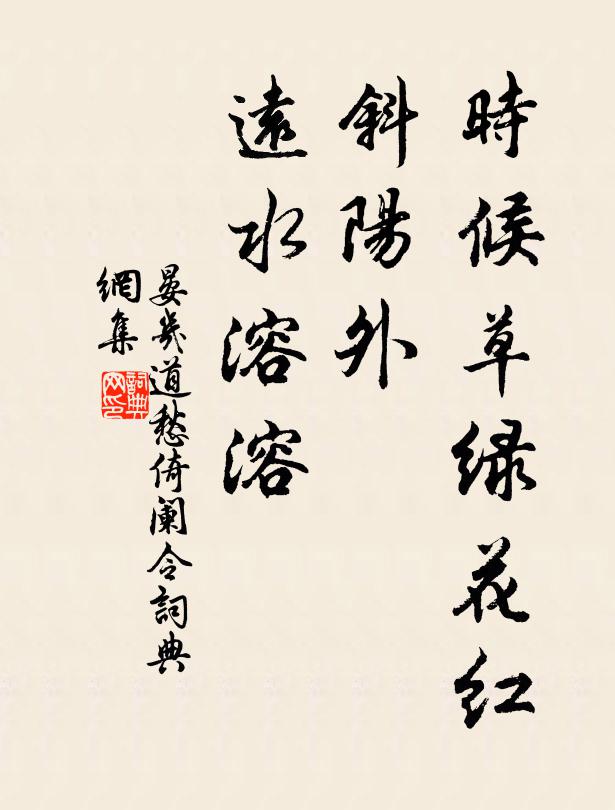 時候草緑花紅
斜陽外
遠水溶溶
晏幾道愁倚闌令詞典
網集
詞典网印